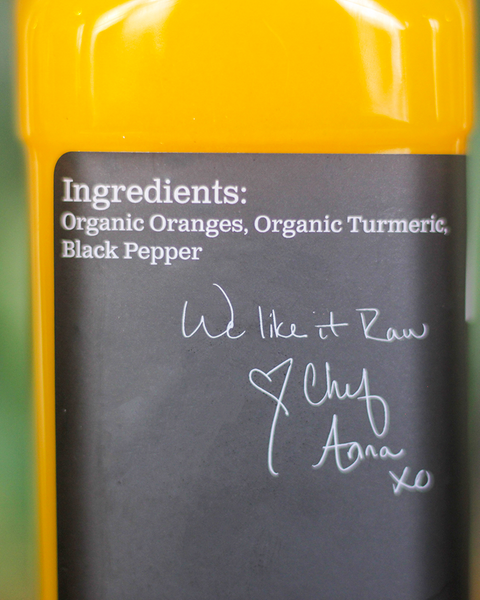 Ingredients:
Organic Oranges, Organic Turmeric,
Black Pepper
We like it Raw
♡ Chef
Anna
xo